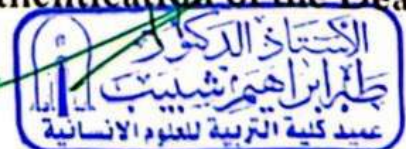 thentication of the Dea
الأستاذ الدكتور
طه ابراهيم شبيب
عميد كلية التربية للعلوم الانسانية